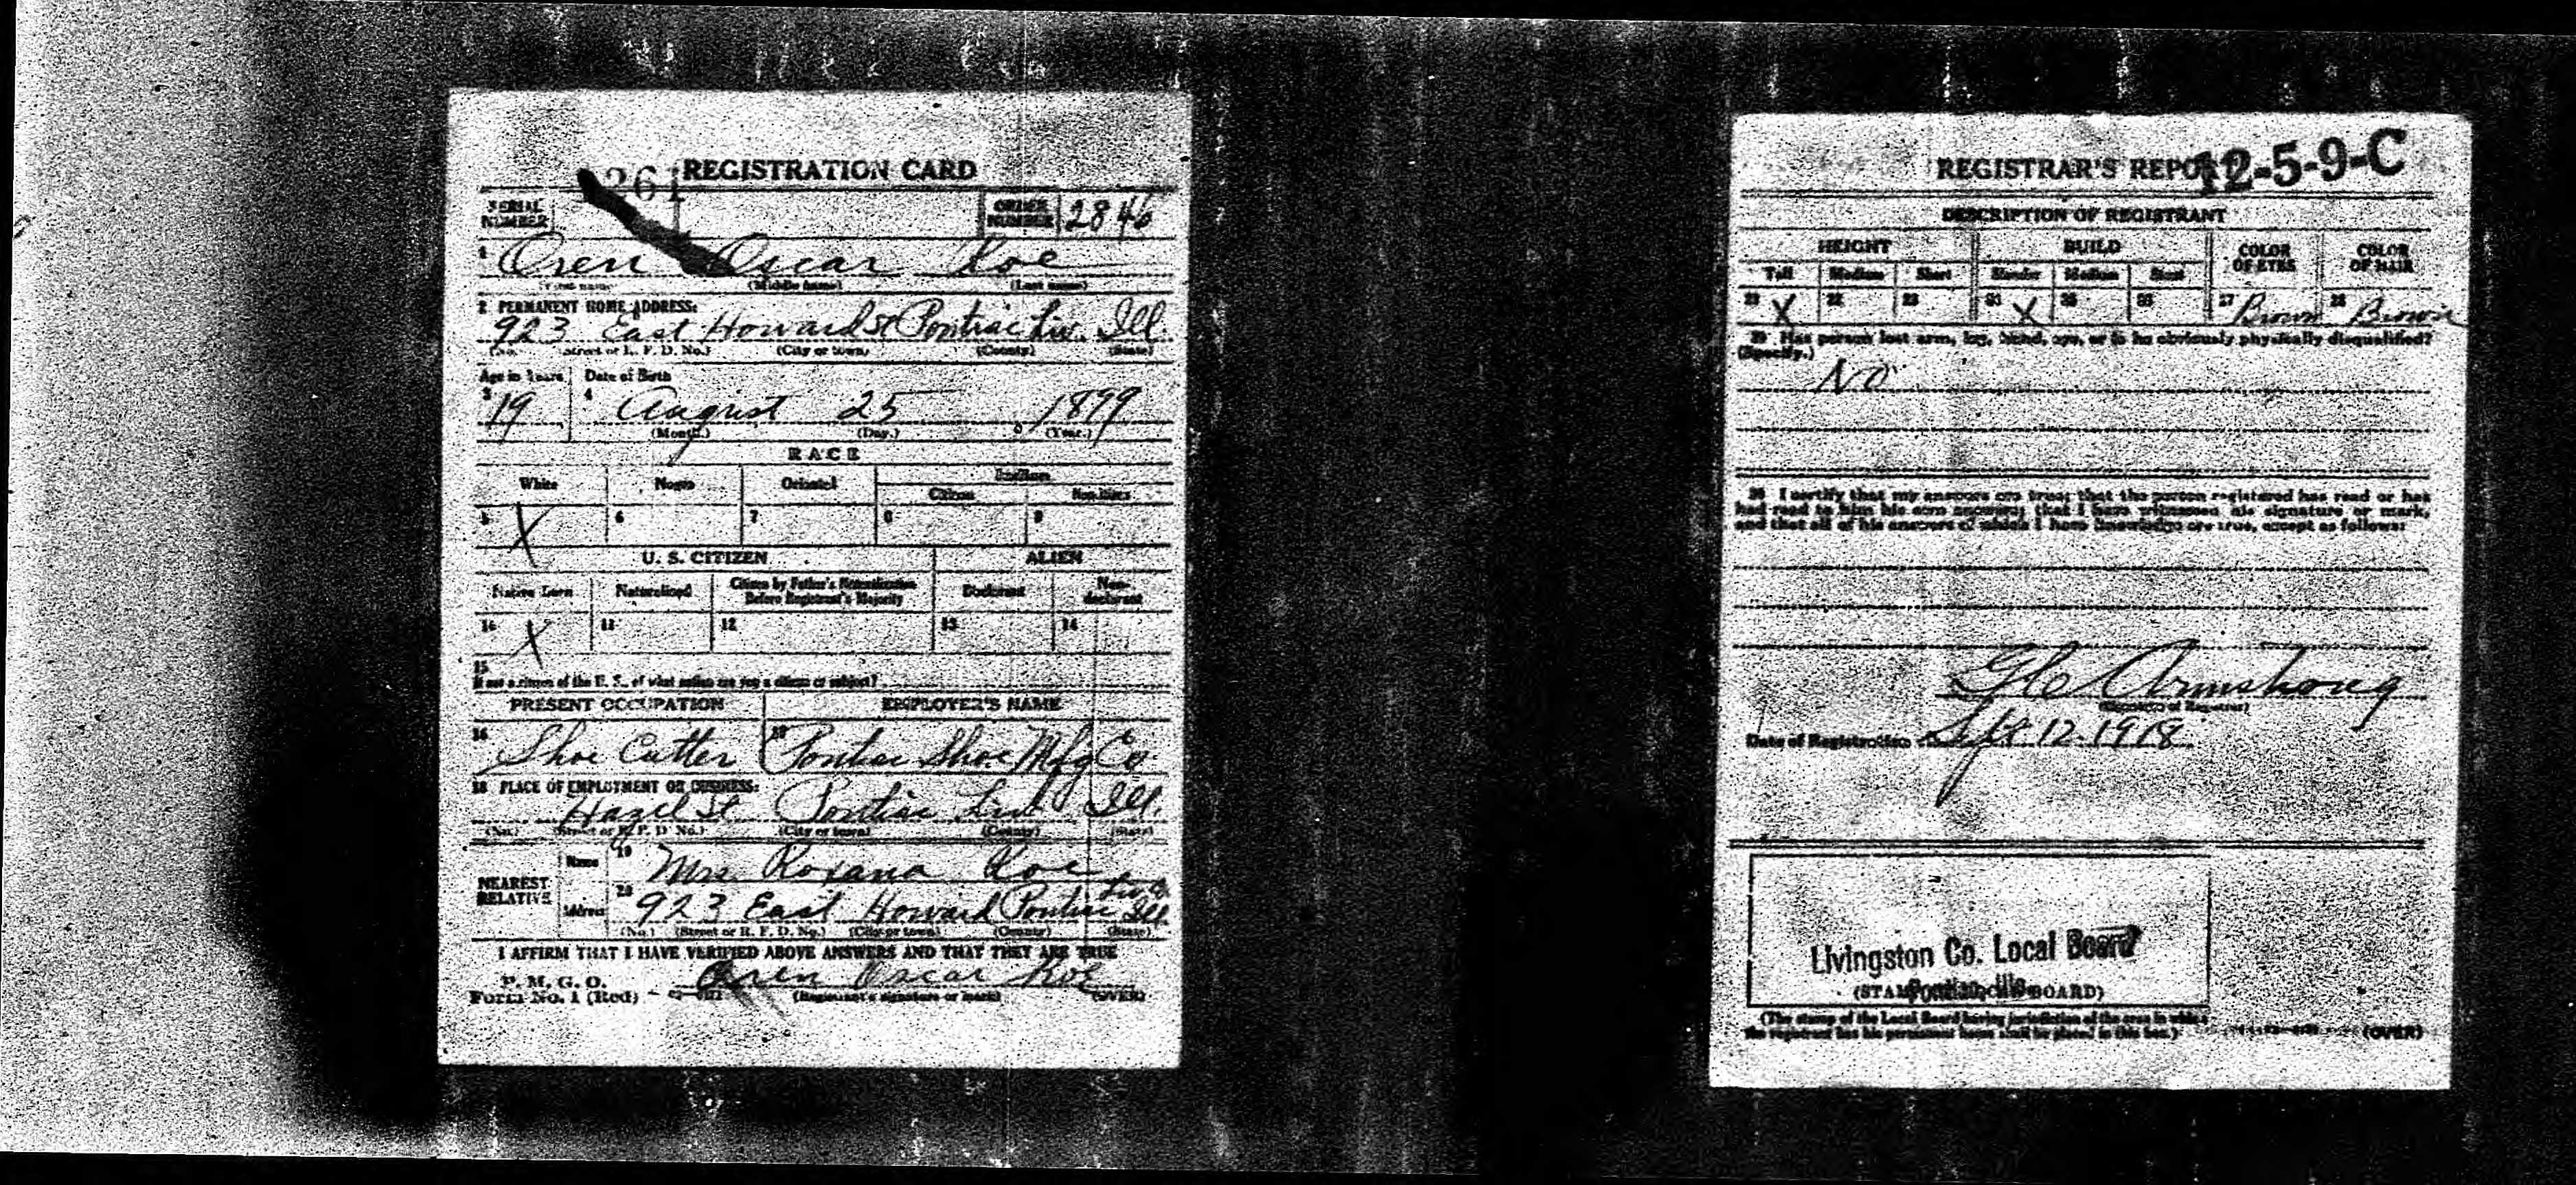 261
REGISTRATION CARD
SERIAL NUMBER
ORDER NUMBER 2846
1 Oren Oscar Roe
(First name) (Middle name) (Last name)
2 PERMANENT HOME ADDRESS:
923 East Howard St Pontiac Liv. Ill.
(No.) (Street or R. F. D. No.) (City or town) (County) (State)
Age in Years Date of Birth
3 19 4 August 25 1899
(Month.) (Day.) (Year.)
RACE
White Negro Oriental Indian
Citizen Noncitizen
5 X 6 7 8 9
U. S. CITIZEN ALIEN
Native Born Naturalized Citizen by Father's Naturalization Before Registrant's Majority Declarant Non-declarant
10 X 11 12 13 14
15
If not a citizen of the U. S., of what nation are you a citizen or subject?
PRESENT OCCUPATION EMPLOYER'S NAME
16 Shoe Cutter 17 Pontiac Shoe Mfg Co.
18 PLACE OF EMPLOYMENT OR BUSINESS:
Hazel St Pontiac Liv Ill.
(No.) (Street or R. F. D. No.) (City or town) (County) (State)
NEAREST RELATIVE
Name 19 Mrs. Roxana Roe
Address 20 923 East Howard Pontiac Liv Ill
(No.) (Street or R. F. D. No.) (City or town) (County) (State)
I AFFIRM THAT I HAVE VERIFIED ABOVE ANSWERS AND THAT THEY ARE TRUE
P. M. G. O.
Form No. 1 (Red)
Oren Oscar Roe
(Registrant's signature or mark) (OVER)
REGISTRAR'S REPORT
12-5-9-C
DESCRIPTION OF REGISTRANT
HEIGHT BUILD COLOR OF EYES COLOR OF HAIR
Tall Medium Short Slender Medium Stout
21 X 22 23 24 X 25 26 27 Brown 28 Brown
29 Has person lost arm, leg, hand, eye, or is he obviously physically disqualified?
(Specify.)
No
30 I certify that my answers are true; that the person registered has read or has
had read to him his own answers; that I have witnessed his signature or mark,
and that all of his answers of which I have knowledge are true, except as follows:
Armstrong
(Signature of Registrar)
Date of Registration Sept 12 1918
Livingston Co. Local Board
Pontiac, Ills
(STAMP OF LOCAL BOARD)
(The stamp of the Local Board having jurisdiction of the area in which
the registrant has his permanent home shall be placed in this box.)
(OVER)